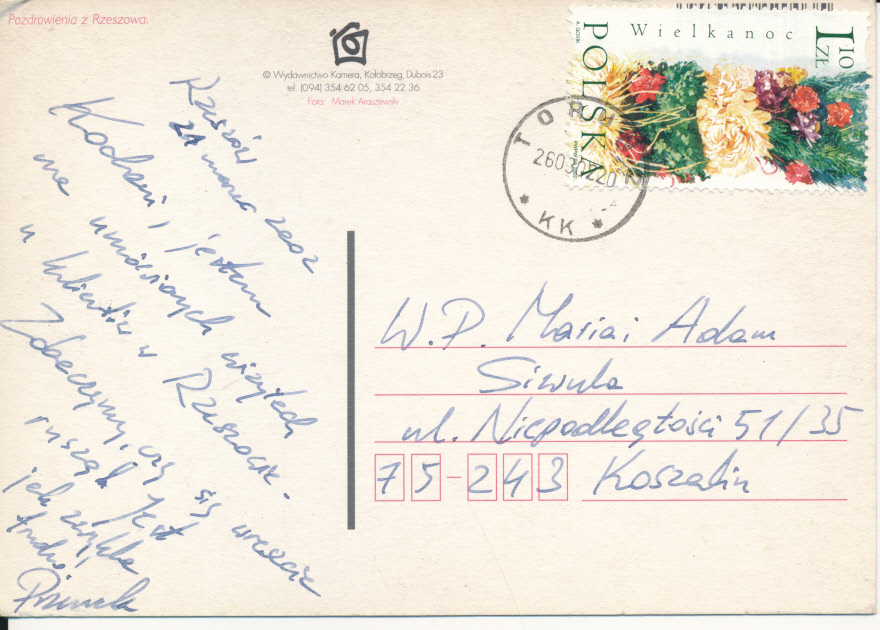 Pozdrowienia z Rzeszowa.
© Wydawnictwo Kamera, Kołobrzeg, Dubois 23
tel. (094) 354 62 05, 354 22 36
Foto: Marek Araszewski
Wielkanoc
POLSKA
1 10 ZŁ
KK
Rzeszów
24 marca 2002
Kochani, jestem
na umówionych wizytach
u klientów w Rzeszowie.
Zobaczymy, czy się wreszcie
ruszą. Jest
jak zwykle
trudno,
W.P. Maria i Adam
Siwula
ul. Niepodległości 51/35
75-243 Koszalin